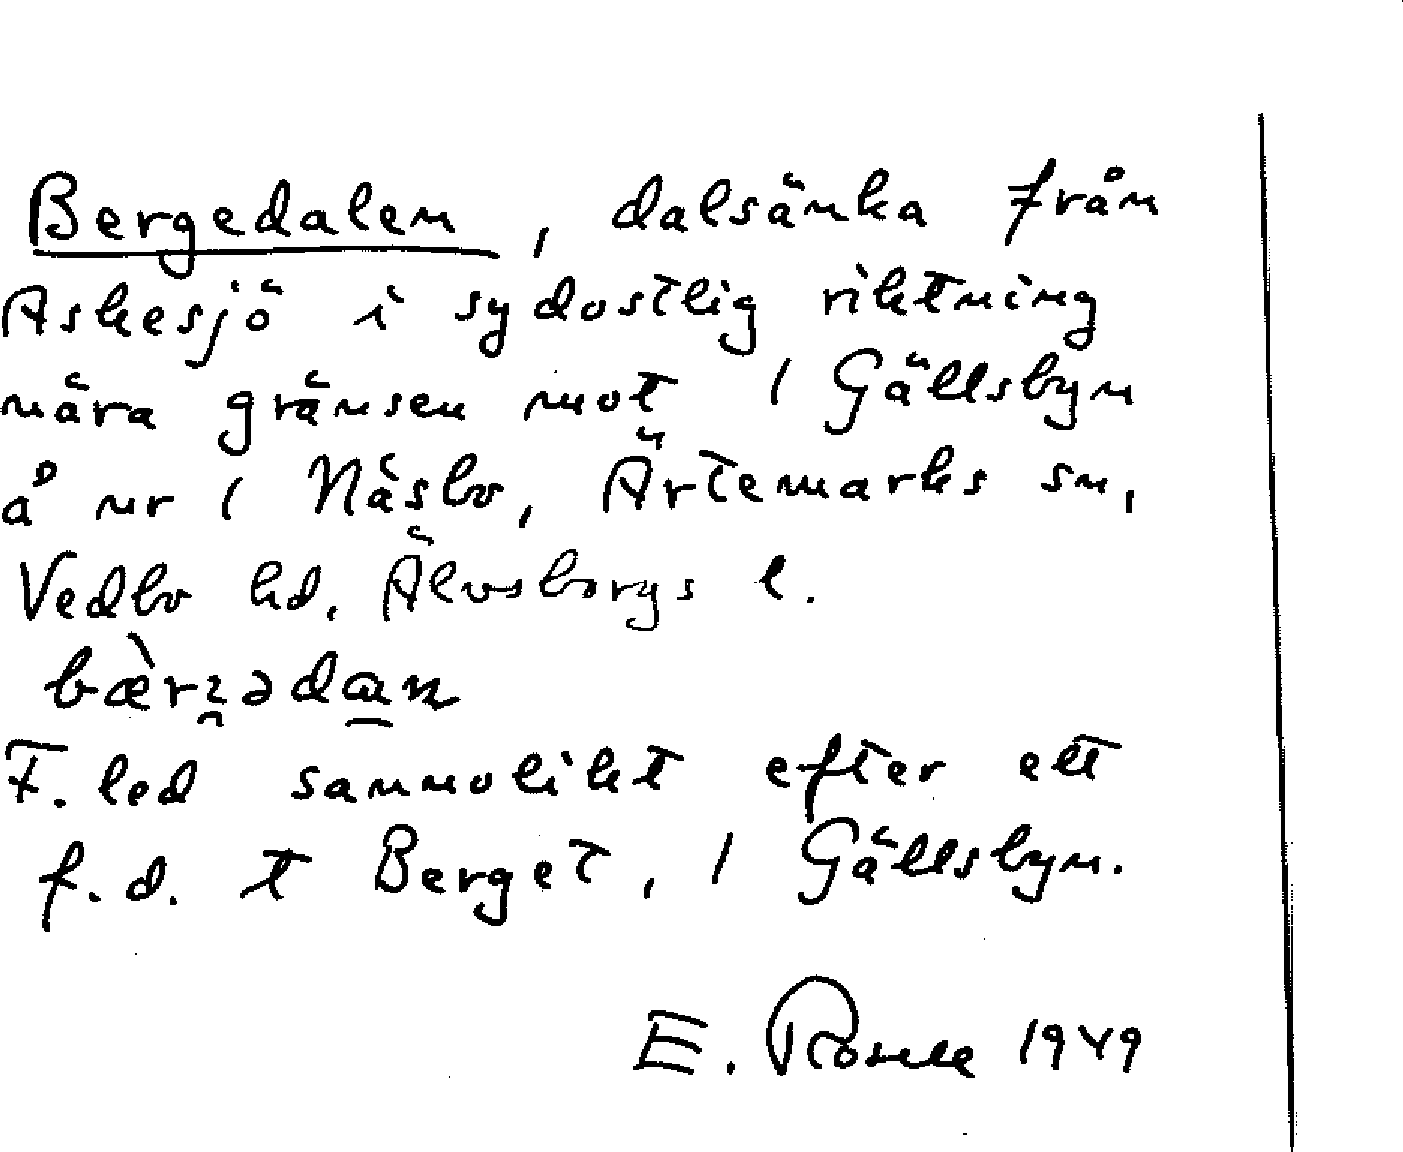 Bergedalen, dalsänka från
Askesjö i sydostlig riktning
nära gränsen mot 1 Gällsbyn
å nr 1 Näsbo, Ärtemarks sn,
Vedbo hd, Älvsborgs l.
F. led sannolikt efter ett
f.d. t Berget, 1 Gällsbyn.
E. 1949